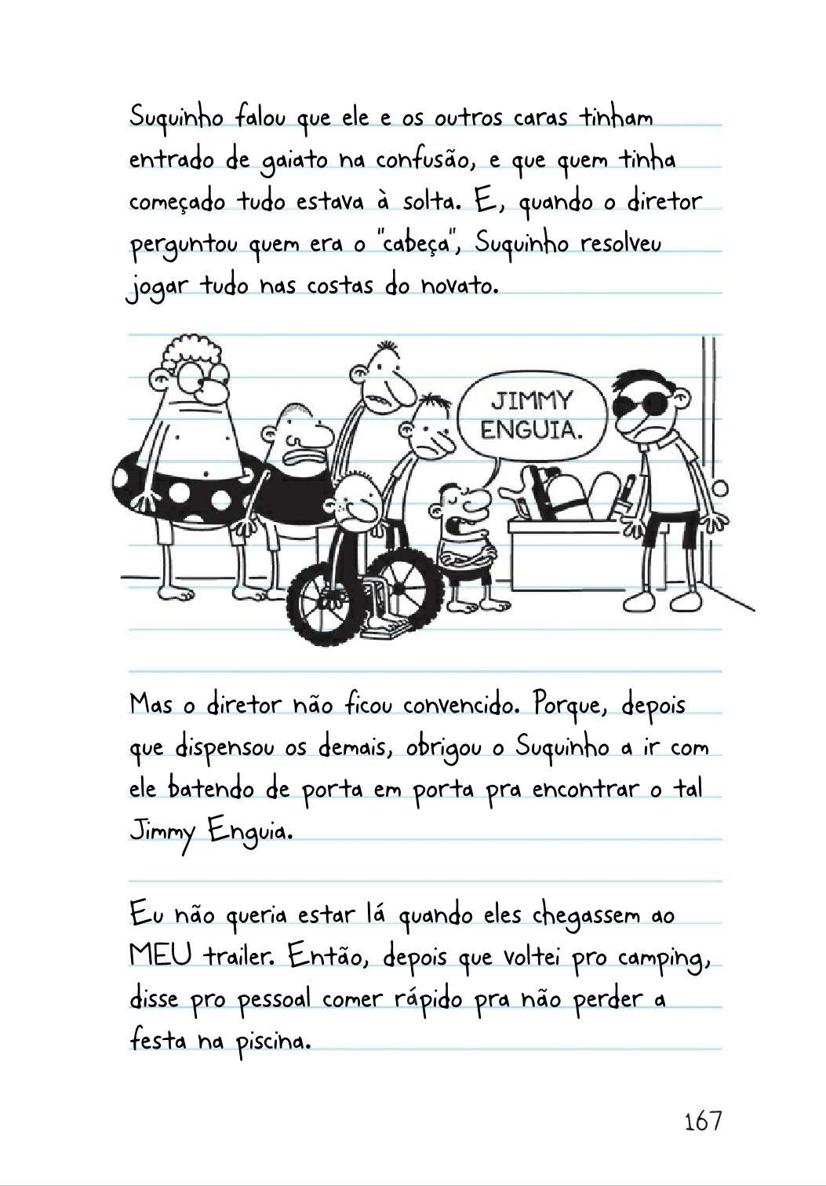 Suquinho falou que ele e os outros caras tinham
entrado de gaiato na confusão, e que quem tinha
começado tudo estava à solta. E, quando o diretor
perguntou quem era o "cabeça", Suquinho resolveu
jogar tudo nas costas do novato.
JIMMY
ENGUIA.
Mas o diretor não ficou convencido. Porque, depois
que dispensou os demais, obrigou o Suquinho a ir com
ele batendo de porta em porta pra encontrar o tal
Jimmy Enguia.
Eu não queria estar lá quando eles chegassem ao
MEU trailer. Então, depois que voltei pro camping,
disse pro pessoal comer rápido pra não perder a
festa na piscina.
167